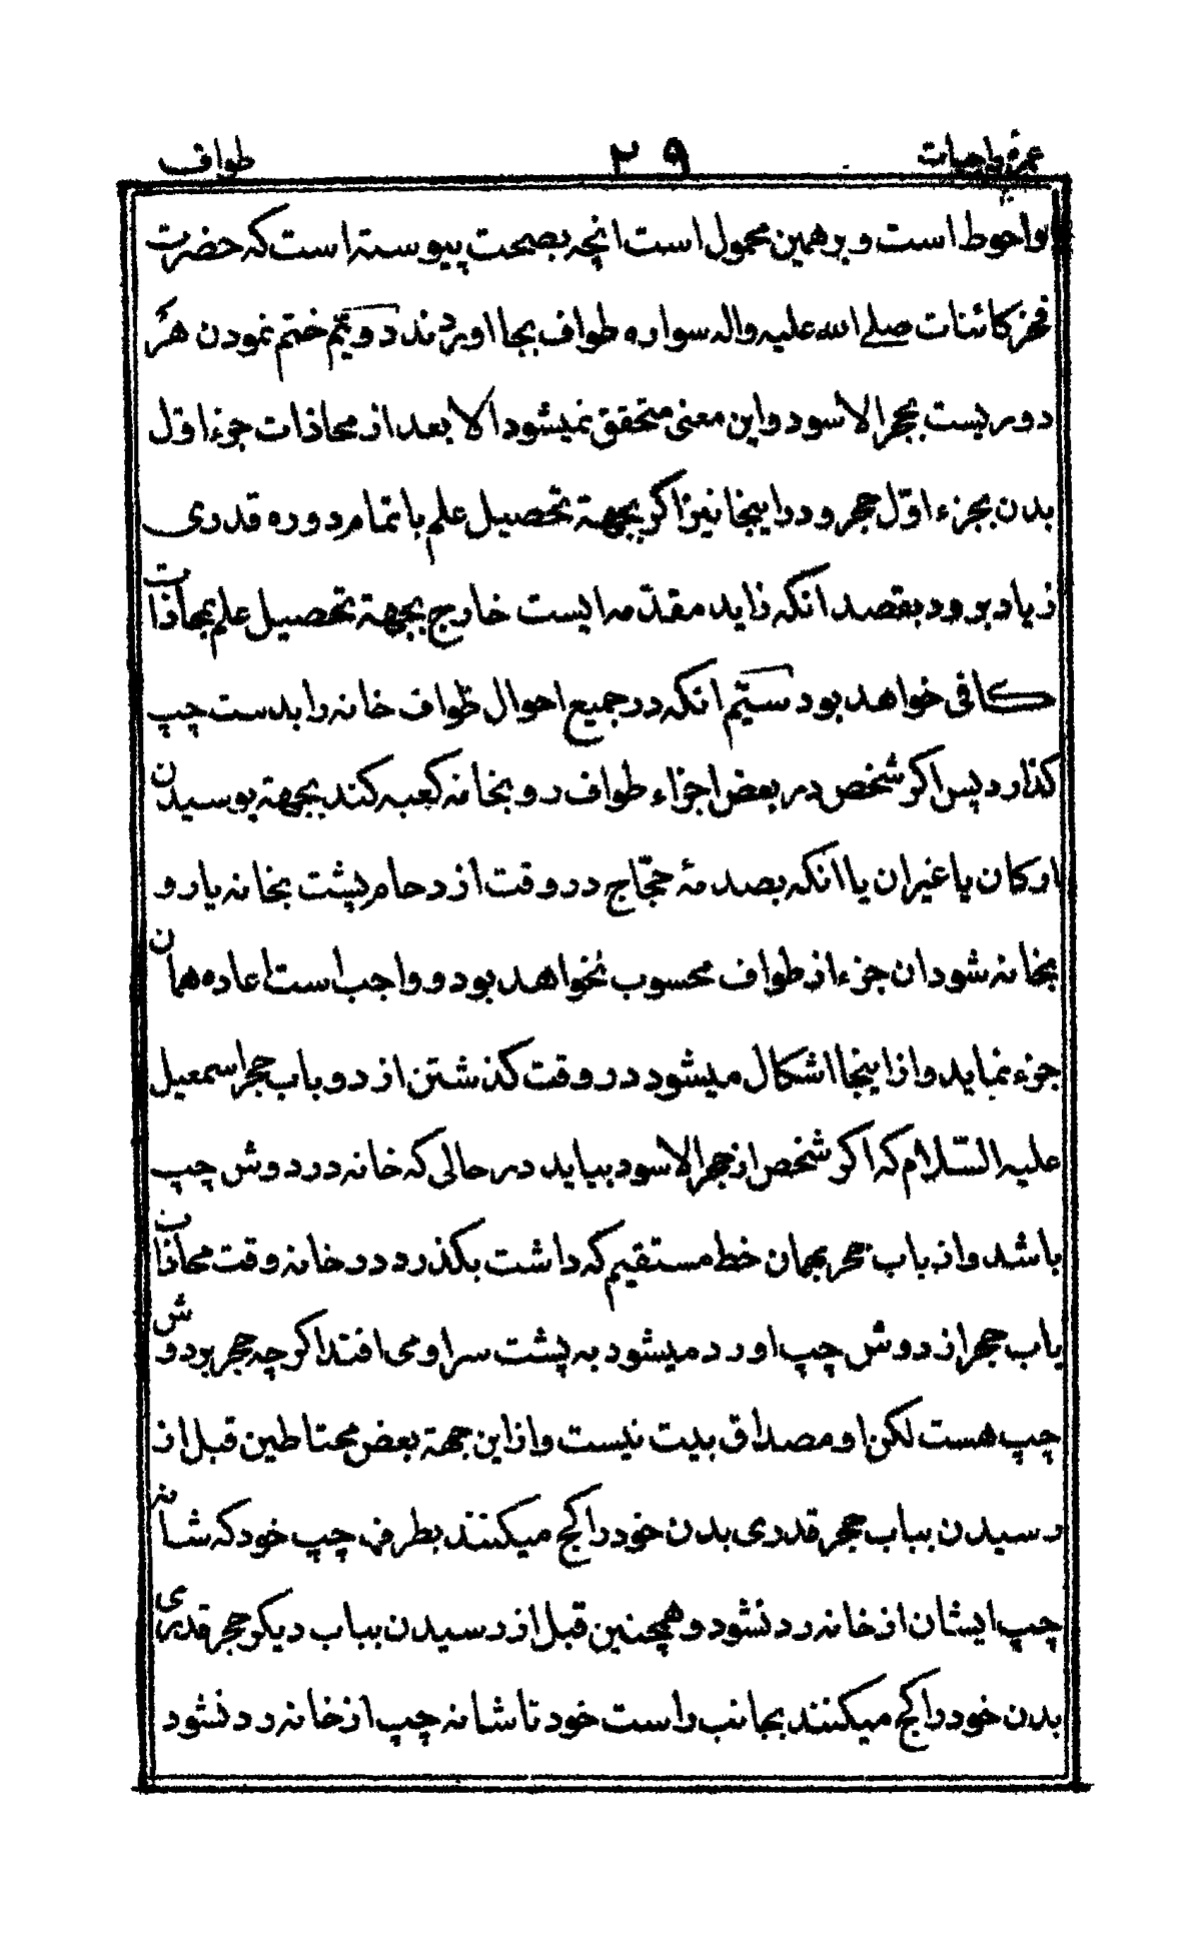 عمره واجبات ۲۹ طواف
واحوط است و بر همین محمول است انچه بصحت پیوسته است که حضرت
فخر کائنات صلے الله علیه واله سواره طواف بجا اوردند دویّم ختم نمودن هر
دوریست بحجر الاسود واین معنی متحقق نمیشود الا بعد از محاذات جزء اول
بدن بجزء اوّل حجر ودر اینجا نیز اکر بجهة تحصیل علم باتمام دوره قدری
زیاد برود بقصد انکه زاید مقدّمه ایست خارج بجهة تحصیل علم بمحاذات
کافی خواهد بود سیّم انکه در جمیع احوال طواف خانه را بدست چپ
کذارد پس اکر شخص در بعض اجزاء طواف رو بخانه کعبه کند بجهة بوسیدن
ارکان یا غیر ان یا انکه بصدمۀ حجّاج در وقت ازدحام پشت بخانه یا رو
بخانه شود ان جزء از طواف محسوب نخواهد بود و واجب است اعاده همان
جزء نماید واز اینجا اشکال میشود در وقت کذشتن از دو باب حجر اسمعیل
علیه السّلام که اکر شخص از حجر الاسود بیاید در حالی که خانه در دوش چپ
باشد واز باب حجر بهمان خط مستقیم که داشت بکذرد در خانه وقت محاذات
باب حجر از دوش چپ او رد میشود به پشت سر او می افتد اکرچه حجر بر دوش
چپ هست لکن او مصداق بیت نیست واز این جهة بعض محتاطین قبل از
رسیدن بباب حجر قدری بدن خود را کج میکنند بطرف چپ خود که شانه
چپ ایشان از خانه رد نشود و همچنین قبل از رسیدن بباب دیکر حجر قدری
بدن خود را کج میکنند بجانب راست خود تا شانه چپ از خانه رد نشود